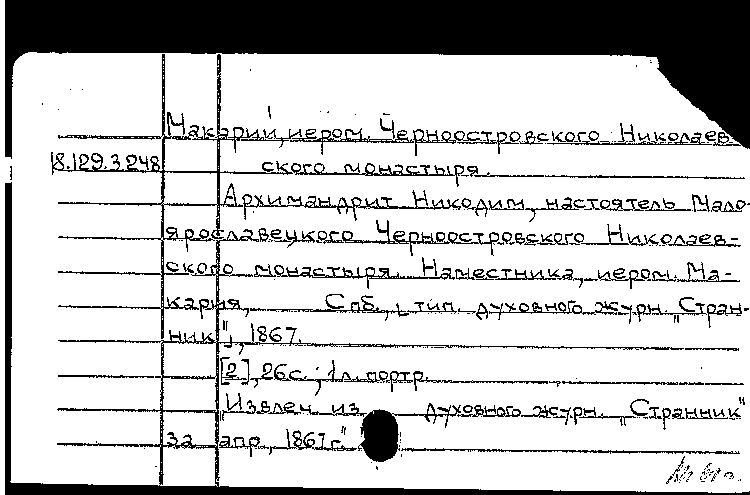 Макарий, иером. Черноостровского Николаев-
18.129.3.248 ского монастыря.
Архимандрит Никодим, настоятель Мало-
ярославецкого Черноостровского Николаев-
ского монастыря. Наместника, иером. Ма-
кария, Спб., [тип. духовного журн. "Стран-
ник"], 1867.
[2], 26 с.; 1 л. портр.
"Извлеч. из духовного журн. "Странник"
за апр., 1867 г."